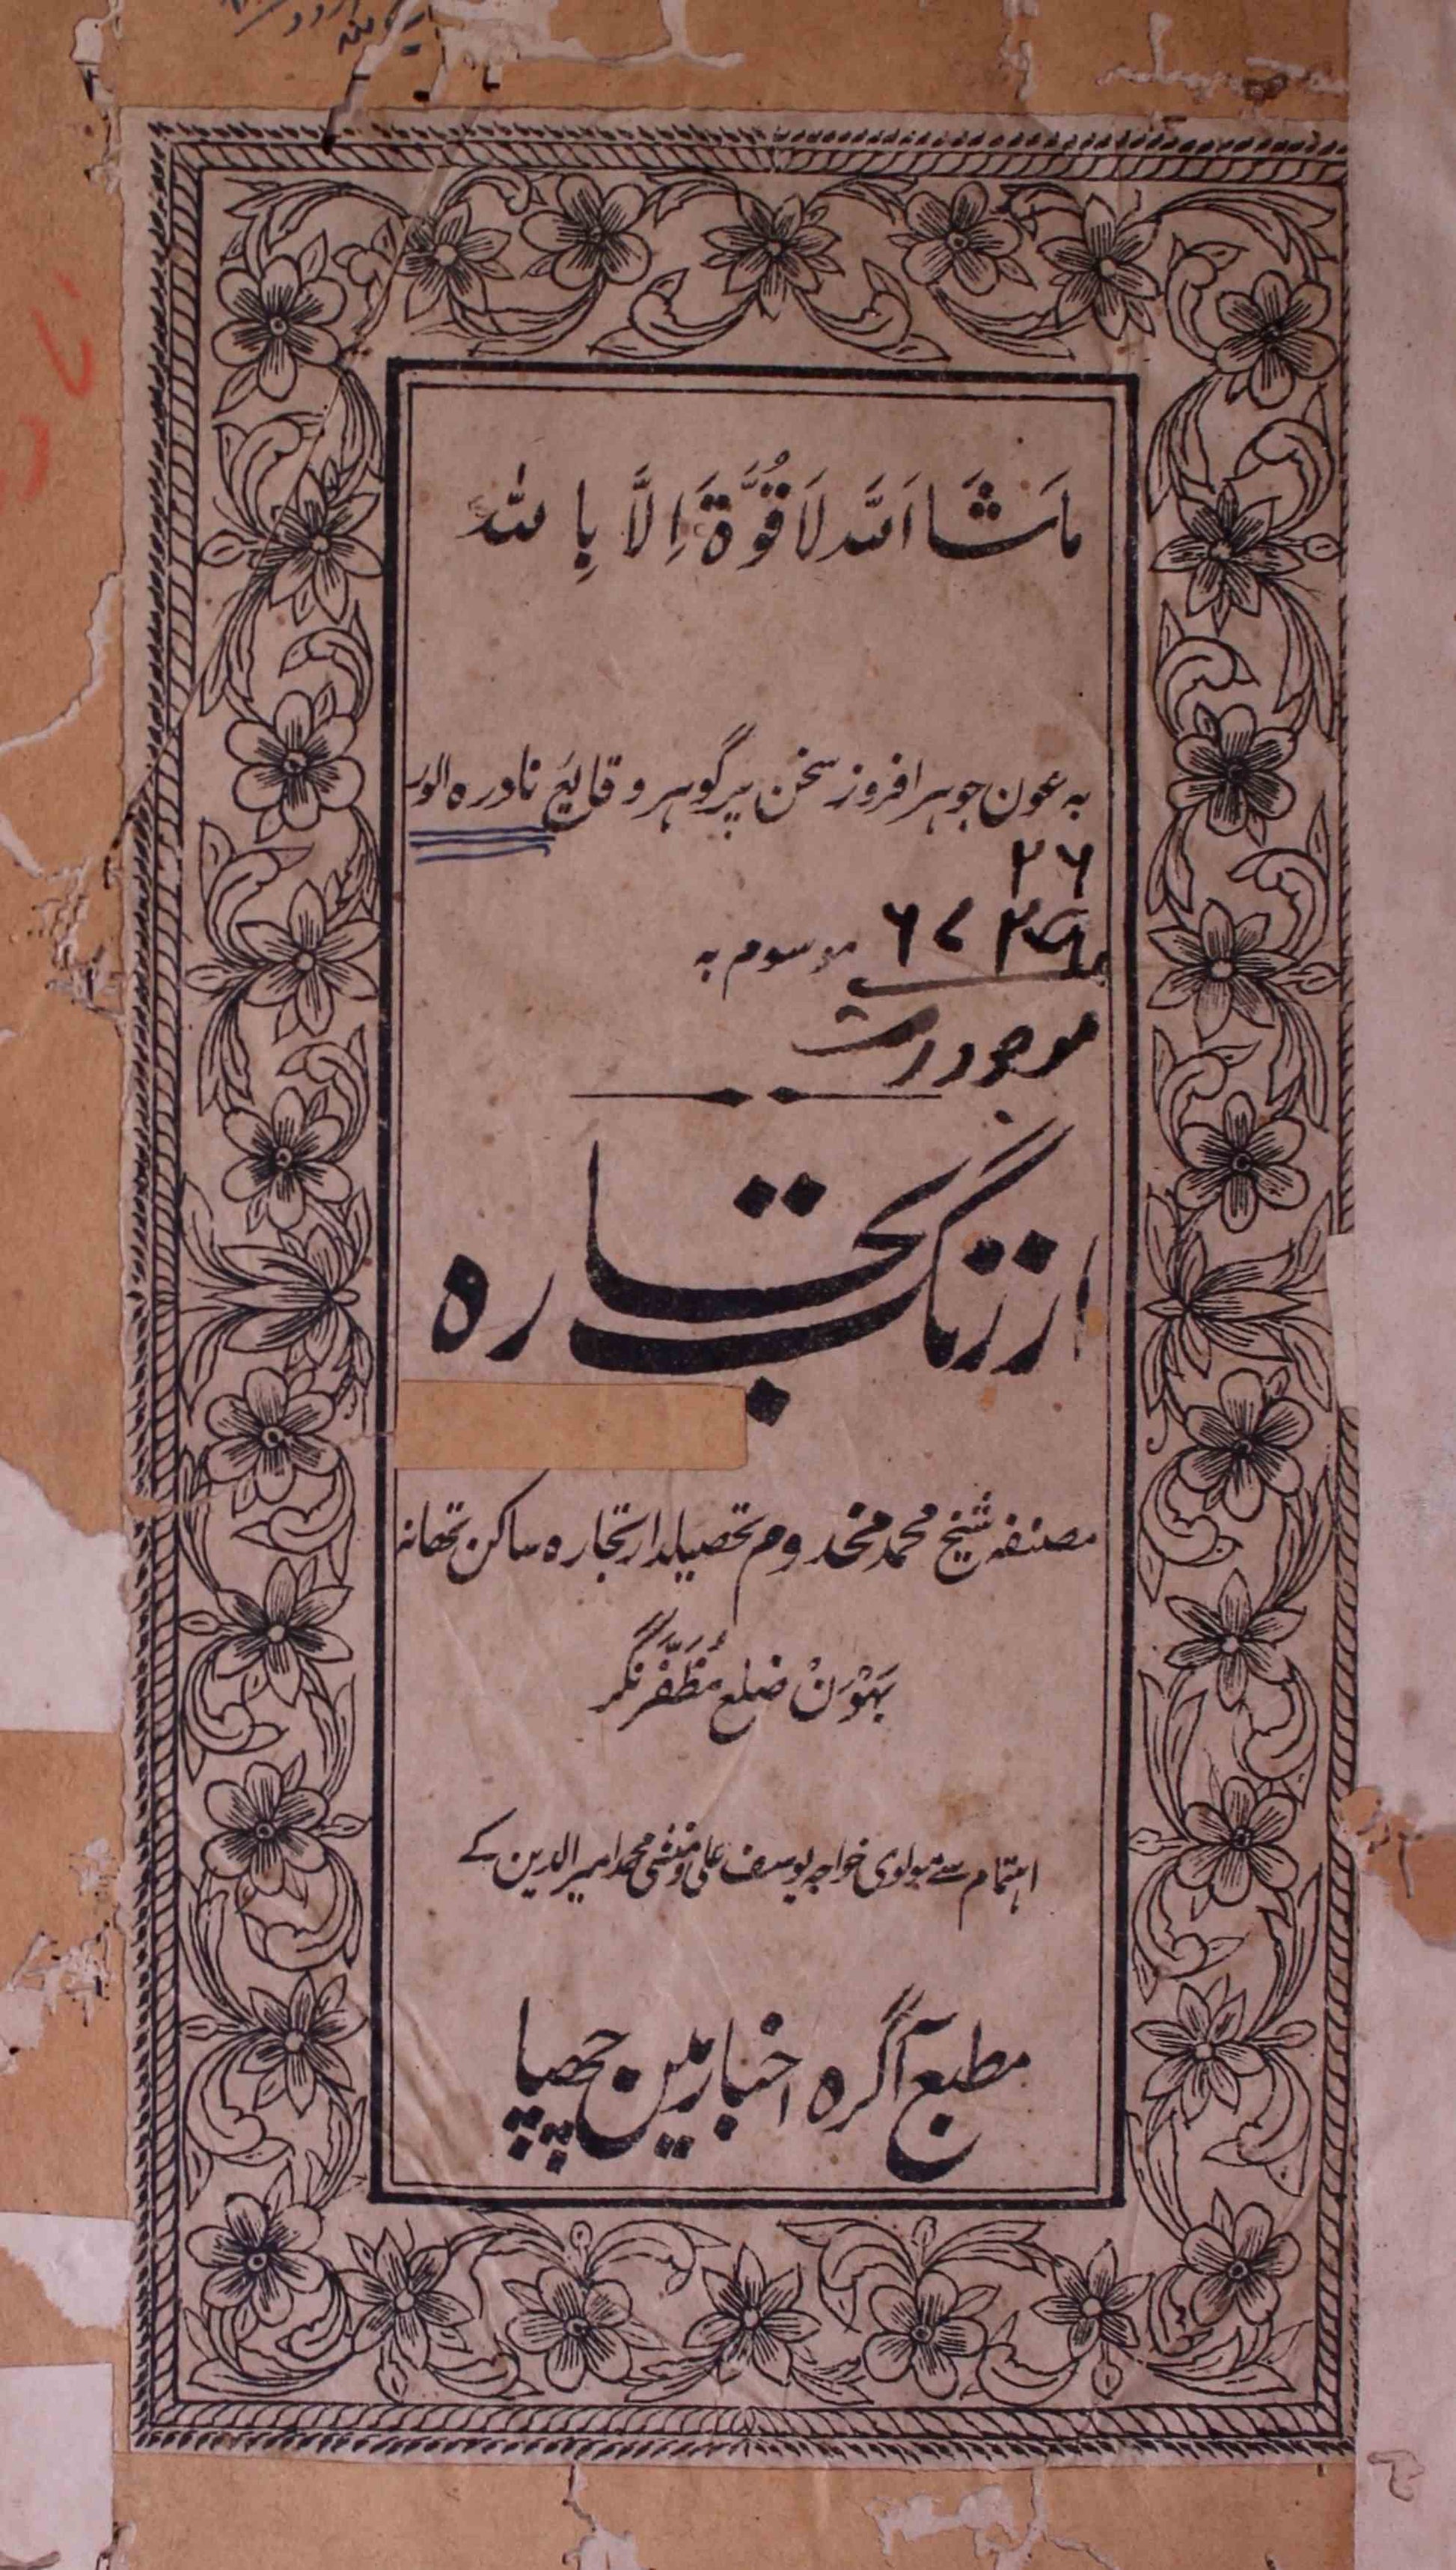 مَاشَا اَللّٰہ لَا قُوَّۃَ اِلَّا بِاللّٰہ
بہ عون جوہر افروز سخن پر گوہر وقایع نادرہ الور
۲۶
موسوم بہ
ارژنگ تجارہ
مصنفہ شیخ محمد مخدوم تحصیلدار تجارہ ساکن تھانہ
بہَوْنْ ضلع مُظَفَّرْنگر
اہتمام سے مولوی خواجہ یوسف علی و منشی محمد امیر الدین کے
مطبع آگرہ اخبار میں چھپا